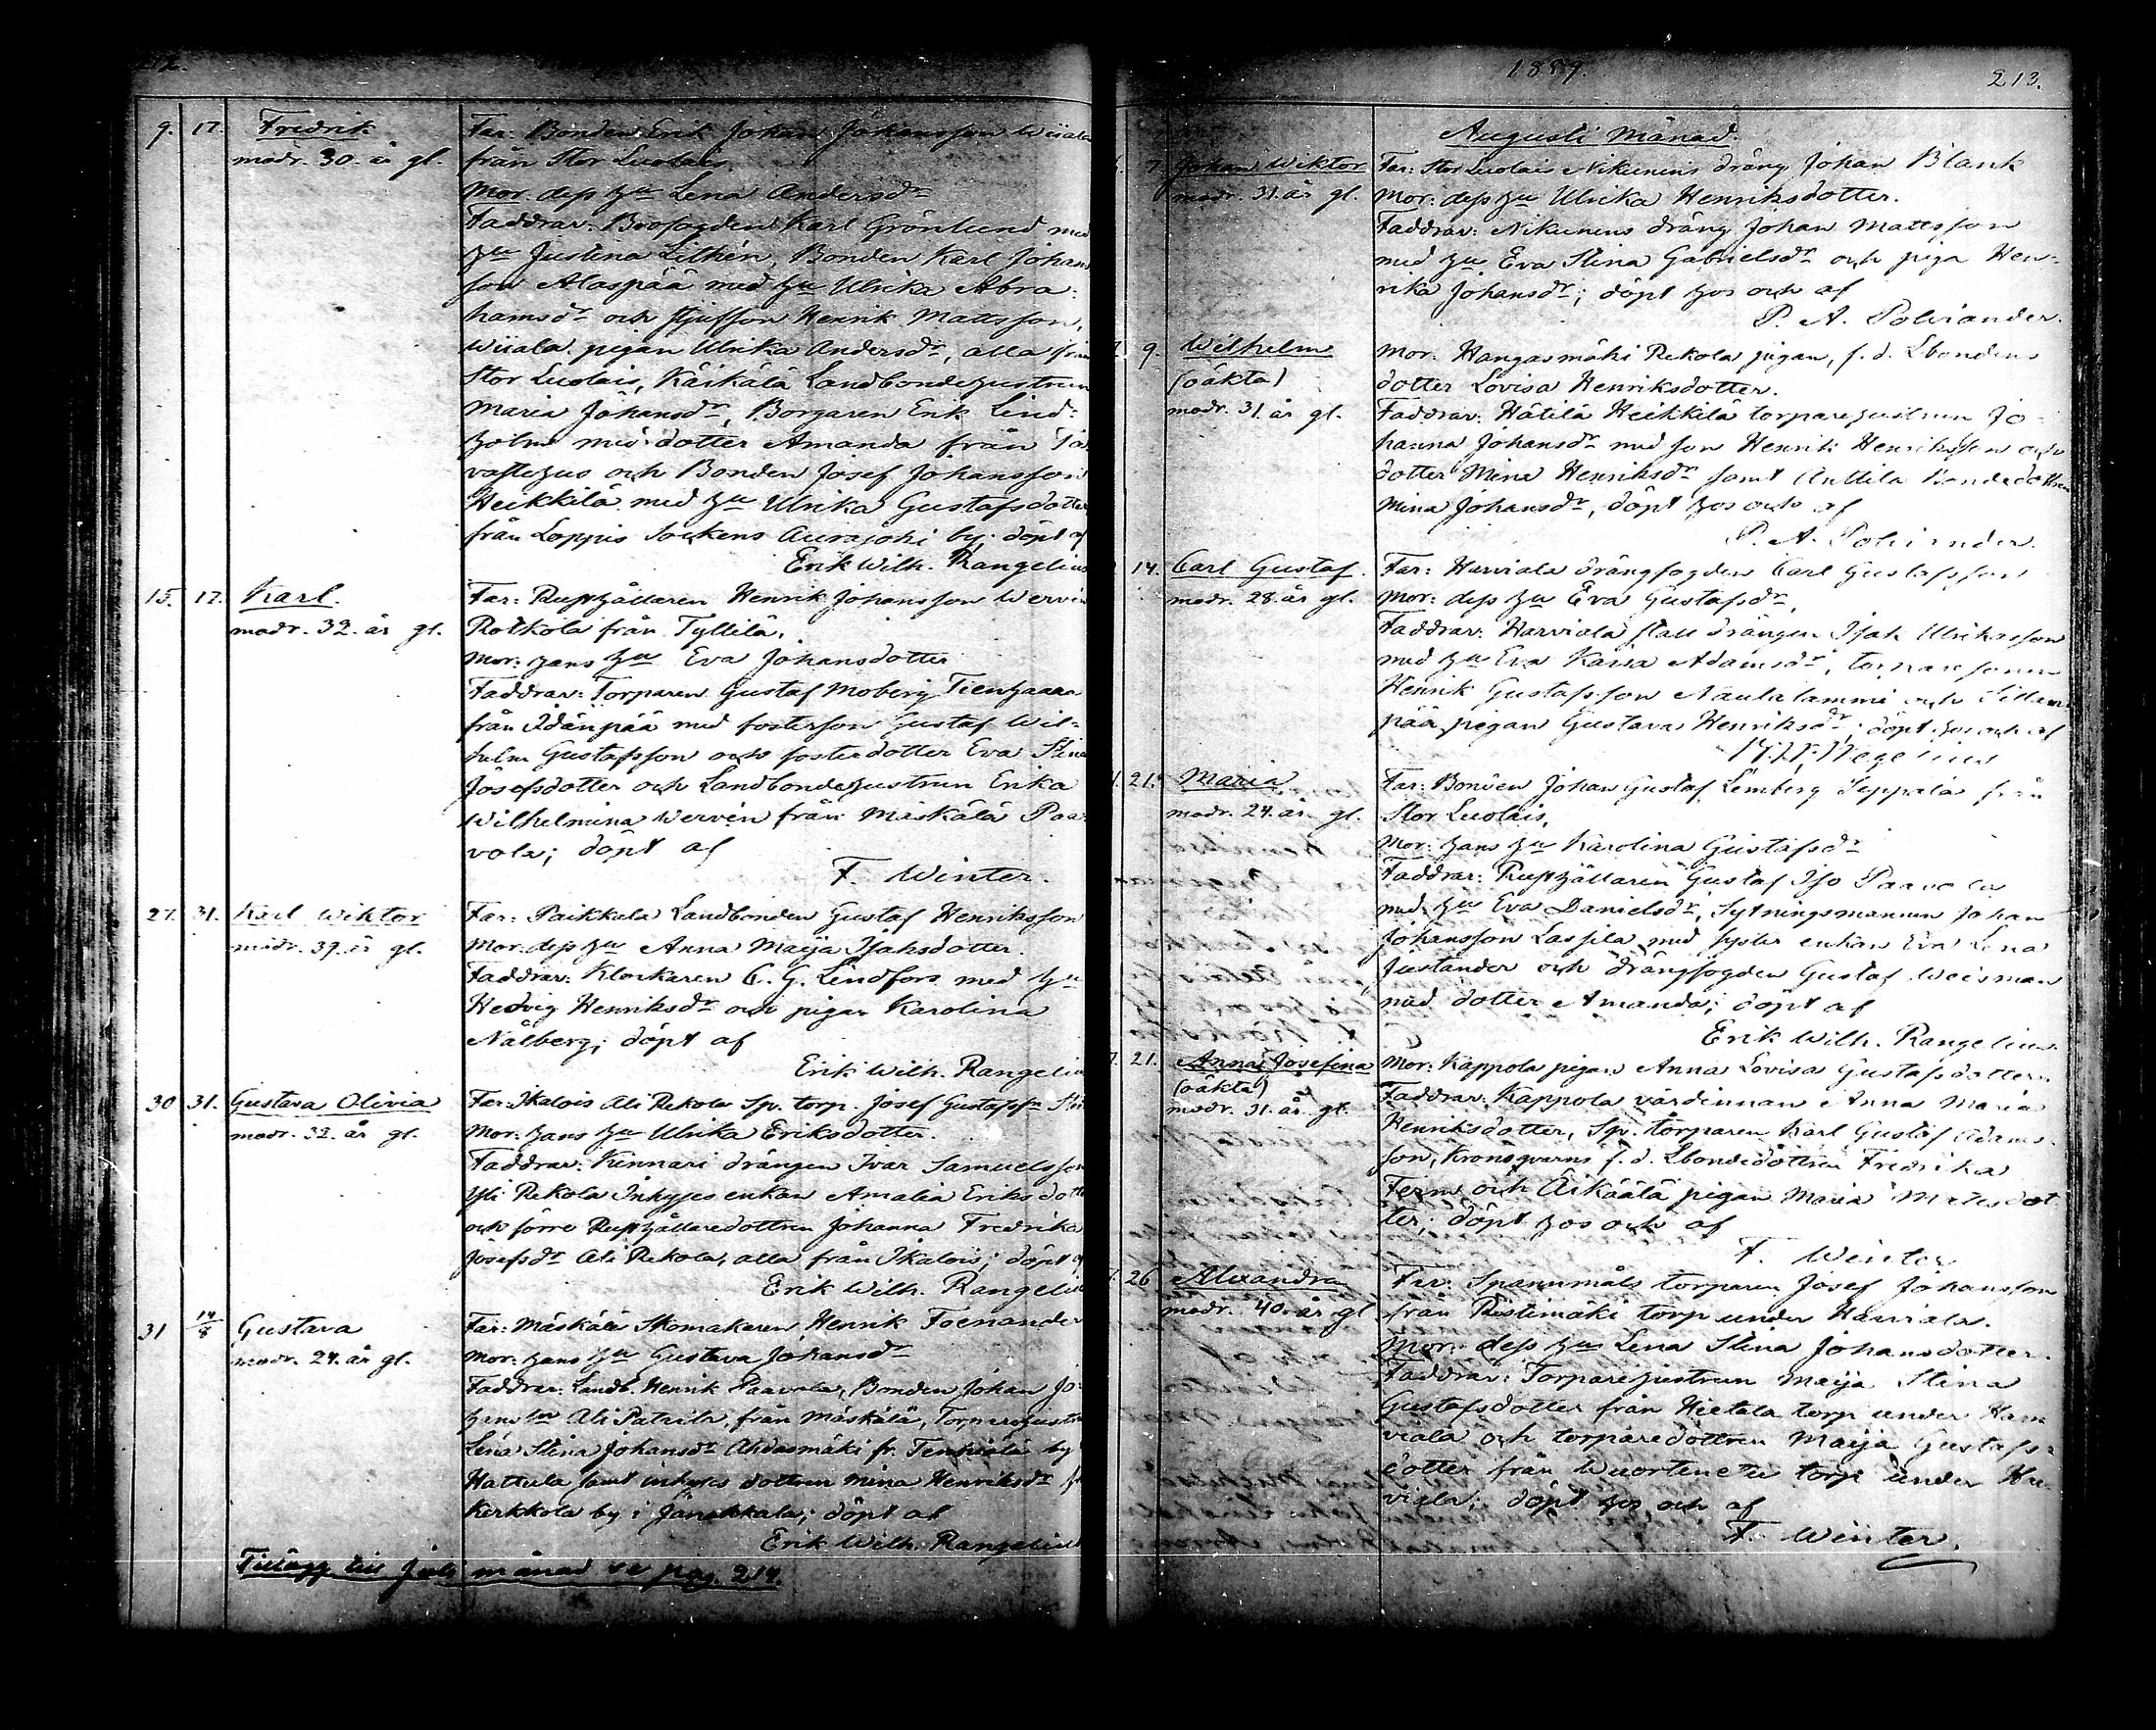 9. 17. Fredrik Far: Bonden Erik Johan Johansson Wiiala
modr. 30. år gl. från Stor Luolais.
Mor: dess hu Lena Andersdr
Faddrar: Brofogden Karl Grönlund med
hu Justina Lithén, Bonden Karl Johans
son Alaspää med hu Ulrika Abra:
hamsdr och styfson Henrik Mattsson,
Wiiala pigan Ulrika Andersdr, alla från
Stor Luolais, Käikälä Landbondehustrun
Maria Johansdr, Borgaren Erik Lind:
holm med dotter Amanda från Ta
vastehus och Bonden Josef Johansson
Heikkilä med hu Ulrika Gustafsdotter
från Loppis Sockens Aurajoki by; döpt af
Erik Wilh. Rangelius
15. 17. Karl. Far: Rusthållaren Henrik Johansson Wervin
modr. 32. år gl. Rotkola från Tyllilä.
Mor: hans hu Eva Johansdotter
Faddrar: Torparen Gustaf Moberg Tienhaara
från Idänpää med fosterson Gustaf Wil-
helm Gustafsson och fosterdotter Eva Stina
Josefsdotter och Landbondehustrun Erika
Wilhelmina Wervin från Mäskälä Paa
vola; döpt af
F. Winter.
27. 31. Karl Wiktor Far: Paikkala Landbonden Gustaf Henriksson
modr. 39. år gl. Mor: dess hu Anna Maija Isaksdotter.
Faddrar: Klockaren C. G. Lindfors med hu
Hedvig Henriksdr och pigan Karolina
Nålberg; döpt af
Erik Wilh. Rangelius
30 31. Gustava Olivia Far: Ikalois Ali Rekola Sp. torp. Josef Gustafss
modr. 32. år gl. Mor: hans hu Ulrika Eriksdotter.
Faddrar: Kinnari drängen Ivar Samuelsson
Yli Rekola Inhyses enkan Amalia Eriksdott
och förre Rusthållaredottren Johanna Fredrika
Josefsdr Ali Rekola, alla från Ikalois; döpt af
Erik Wilh. Rangelius
31 14/8 Gustava Far: Mäskälä Skomakaren Henrik Foenander
modr. 24. år gl. Mor: hans hu Gustava Johansdr
Faddrar: Landb. Henrik Paavola, Bonden Johan Jo-
hansson Ali Pataila, från Mäskälä, Torparehustr
Lena Stina Johansdr Ahdasmäki fr. Tenhiälä by
Hattula samt inhyses dottren Mina Henriksdr fr
Kerkkola by i Janakkala; döpt af
Erik Wilh. Rangelius
Tillägg till Juli månad se pag. 214.
1859. 213.
Augusti Månad.
7 Johan Wiktor Far: Stor Luolais Nikunens dräng Johan Blank
modr. 31. år gl. Mor: dess hu Ulrika Henriksdotter.
Faddrar: Nikunens dräng Johan Mattsson
med hu Eva Stina Gabrielsdr och piga Hen-
rika Johansdr; döpt hos och af
P. A. Polviander.
9. Wilhelm Mor: Hangasmäki Rekola pigan, f. d. Lbondens
(oäkta) dotter Lovisa Henriksdotter.
modr. 31. år gl. Faddrar: Hätilä Heikkilä torparehustrun Jo-
hanna Johansdr med son Henrik Henriksson och
dotter Mina Henriksdr samt Anttila Bondedottren
Mina Johansdr, döpt hos och af
P. A. Polviander.
14. Carl Gustaf. Far: Harviala drängfogden Carl Gustafsson
modr. 28. år gl. Mor: dess hu Eva Gustafsdr.
Faddrar: Harviala stall drängen Isak Ulriksson
med hu Eva Kaisa Adamsdr, torparesonen
Henrik Gustafsson Naulalammi och Sillan
pää pigan Gustava Henriksdr; döpt hos och af
Wegelius
21. Maria Far: Bonden Johan Gustaf Lemberg Seppälä från
modr. 24. år gl. Stor Luolais.
Mor: hans hu Karolina Gustafsdr
Faddrar: Rusthållaren Gustaf Iso Paavola
med hu Eva Danielsdr, Sytningsmannen Johan
Johansson Lassila med syster enkan Eva Lena
Justander och drängfogden Gustaf Weisman
med dotter Amanda; döpt af
Erik Wilh. Rangelius.
21. Anna Josefina Mor: Kappola pigan Anna Lovisa Gustafsdotter.
(oäkta) Faddrar: Kappola värdinnan Anna Maria
modr. 31. år gl. Henriksdotter, Sp. torparen Karl Gustaf Adams-
son, Kronoqvarns f. d. Lbondedottren Fredrika
Ferm och Äikäälä pigan Maria Matsdot
ter; döpt hos och af
F. Winter
26 Alexandra Far: Spannmåls torparen Josef Johansson
modr. 40. år gl från Ristimäki torp under Harviala.
Mor: dess hu Lena Stina Johansdotter.
Faddrar: Torparehustrun Maija Stina
Gustafsdotter från Hietala torp under Har
viala och torparedottren Maija Gustafs-
dotter från torp under Har-
viala; döpt hos och af
F. Winter.